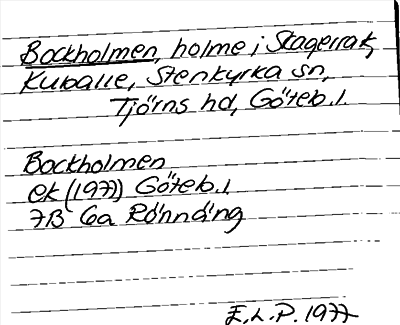 Bockholmen, holme i Skagerrak,
Kuballe, Stenkyrka sn,
Tjörns hd, Göteb. l.
Bockholmen
ek (1977) Göteb. l
7B 6a Rönnäng
E.L.P. 1977